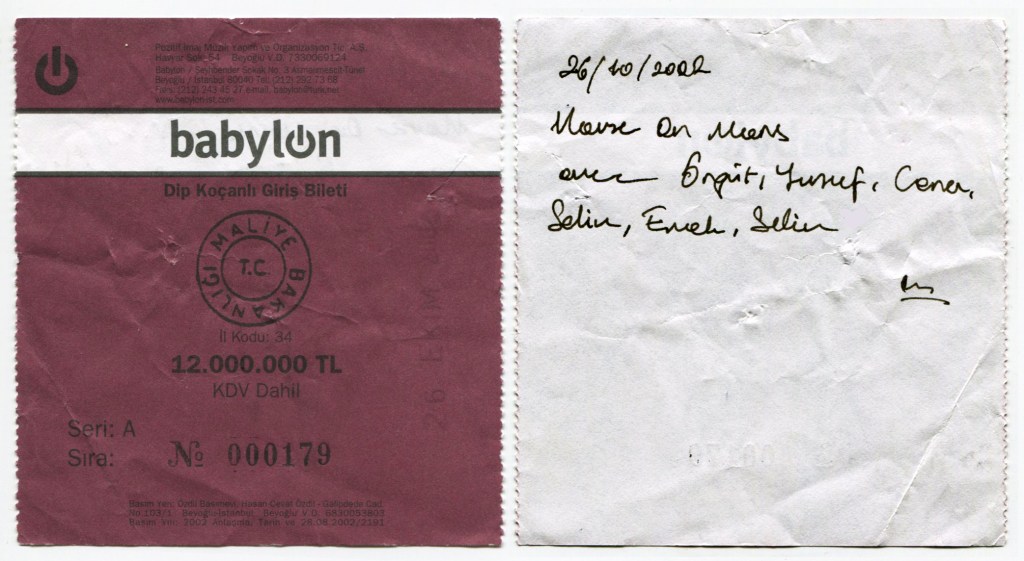 Pozitif İmaj Müzik Yapım ve Organizasyon Tic. A.Ş.
Havyar Sok. 54 Beyoğlu V.D. 7330069124
Babylon / Seyhbender Sokak No. 3 Asmalımescit Tünel
Beyoğlu / İstanbul 80640 Tel: (212) 292 73 68
Faks: (212) 243 45 27 E-mail:
babylon
Dip Koçanlı Giriş Bileti
MALİYE BAKANLIĞI
T.C.
İl Kodu: 34
12.000.000 TL
KDV Dahil
26 EKİM
Seri: A
Sıra: № 000179
Basım Yeri: Özdl Basımevi, Hasan Cevat Özdil - Galipdede Cad.
No:103/1 Beyoğlu-İstanbul Beyoğlu V.D.
Basım Yılı: 2002 Anlaşma, Tarih ve 28.08.2002/2191
26/10/2002
Mouse on Mars
avec Örgüt, Yusuf, Caner,
Selin, Emek, Selin